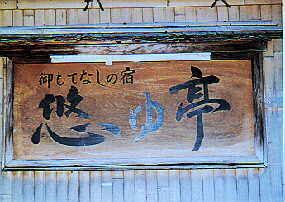 御もてなしの宿
悠ゆ亭